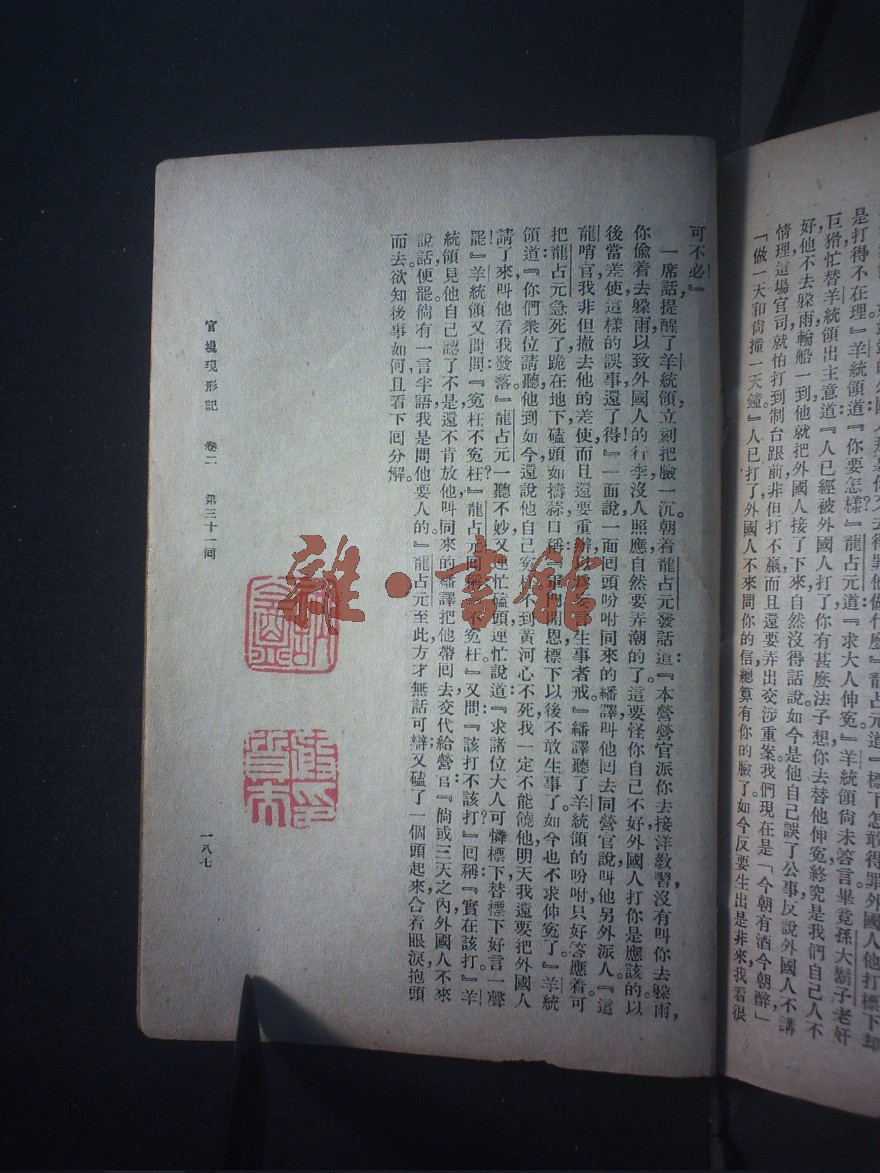 是打得不在理』羊統領道:『你要怎樣』龍占元道:『求大人伸冤』羊統領尚未答言畢竟孫大鬍子老奸
巨猾忙替羊統領出主意道『人已經被外國人打了你有甚麽法子想你去替他伸冤終究是我們自己人不
好他不去躲雨輪船一到他就把外國人接了下來自然沒得話說如今是他自己誤了公事反說外國人不講
情理這場官司就怕打到制台跟前非但打不贏而且還要弄出交涉重案我們現在是「今朝有酒今朝醉」
「做一天和尚撞一天鐘」人已打了外國人不來問你的信總算有你的臉了如今反要生出是非來我看很
可不必!』
一席話提醒了羊統領,立刻把臉一沉,朝着龍占元發話道:『本營營官派你去接洋教習,沒有叫你去躲雨,
你偷着去躲雨,以致外國人的行李沒人照應,自然要弄潮的了。這要怪你自己不好,外國人打你是應該的。以
後當差使,這樣的誤事還了得!』一面說,一面囘頭吩咐同來的繙譯,叫他囘去同營官說,叫他另外派人。『這
龍哨官,我非但撤去他的差使,而且還要重辦,以爲妄言生事者戒。』繙譯聽了羊統領的吩咐,只好答應着。可
把龍占元急死了,跪在地下,磕頭如擣蒜,口稱:『軍門開恩,標下以後不敢生事了。如今也不求伸冤了。』羊統
領道:『你們衆位請聽,他到如今還說他自己冤枉,不到黃河心不死,我一定不能饒他,明天我還要把外國人
請了來,叫他看我發落。』龍占元一聽不妙,又連忙磕頭,連忙說道:『求諸位大人可憐標下,替標下好言一聲
罷!』羊統領又問問:『冤枉不冤枉?』龍占元囘稱:『不冤枉。』又問:『該打不該打?』囘稱:『實在該打。』羊
統領見他自己認了不是,還不肯放他,叫同來的繙譯把他帶囘去交代給營官:『倘或三天之內,外國人不來
說話便罷,倘有一言半語,我是問他要人的。』龍占元至此方才無話可辯,又磕了一個頭起來,合着眼淚抱頭
而去。欲知後事如何,且看下囘分解。
官塲現形記 卷二 第三十一囘
一八七
雜·書館